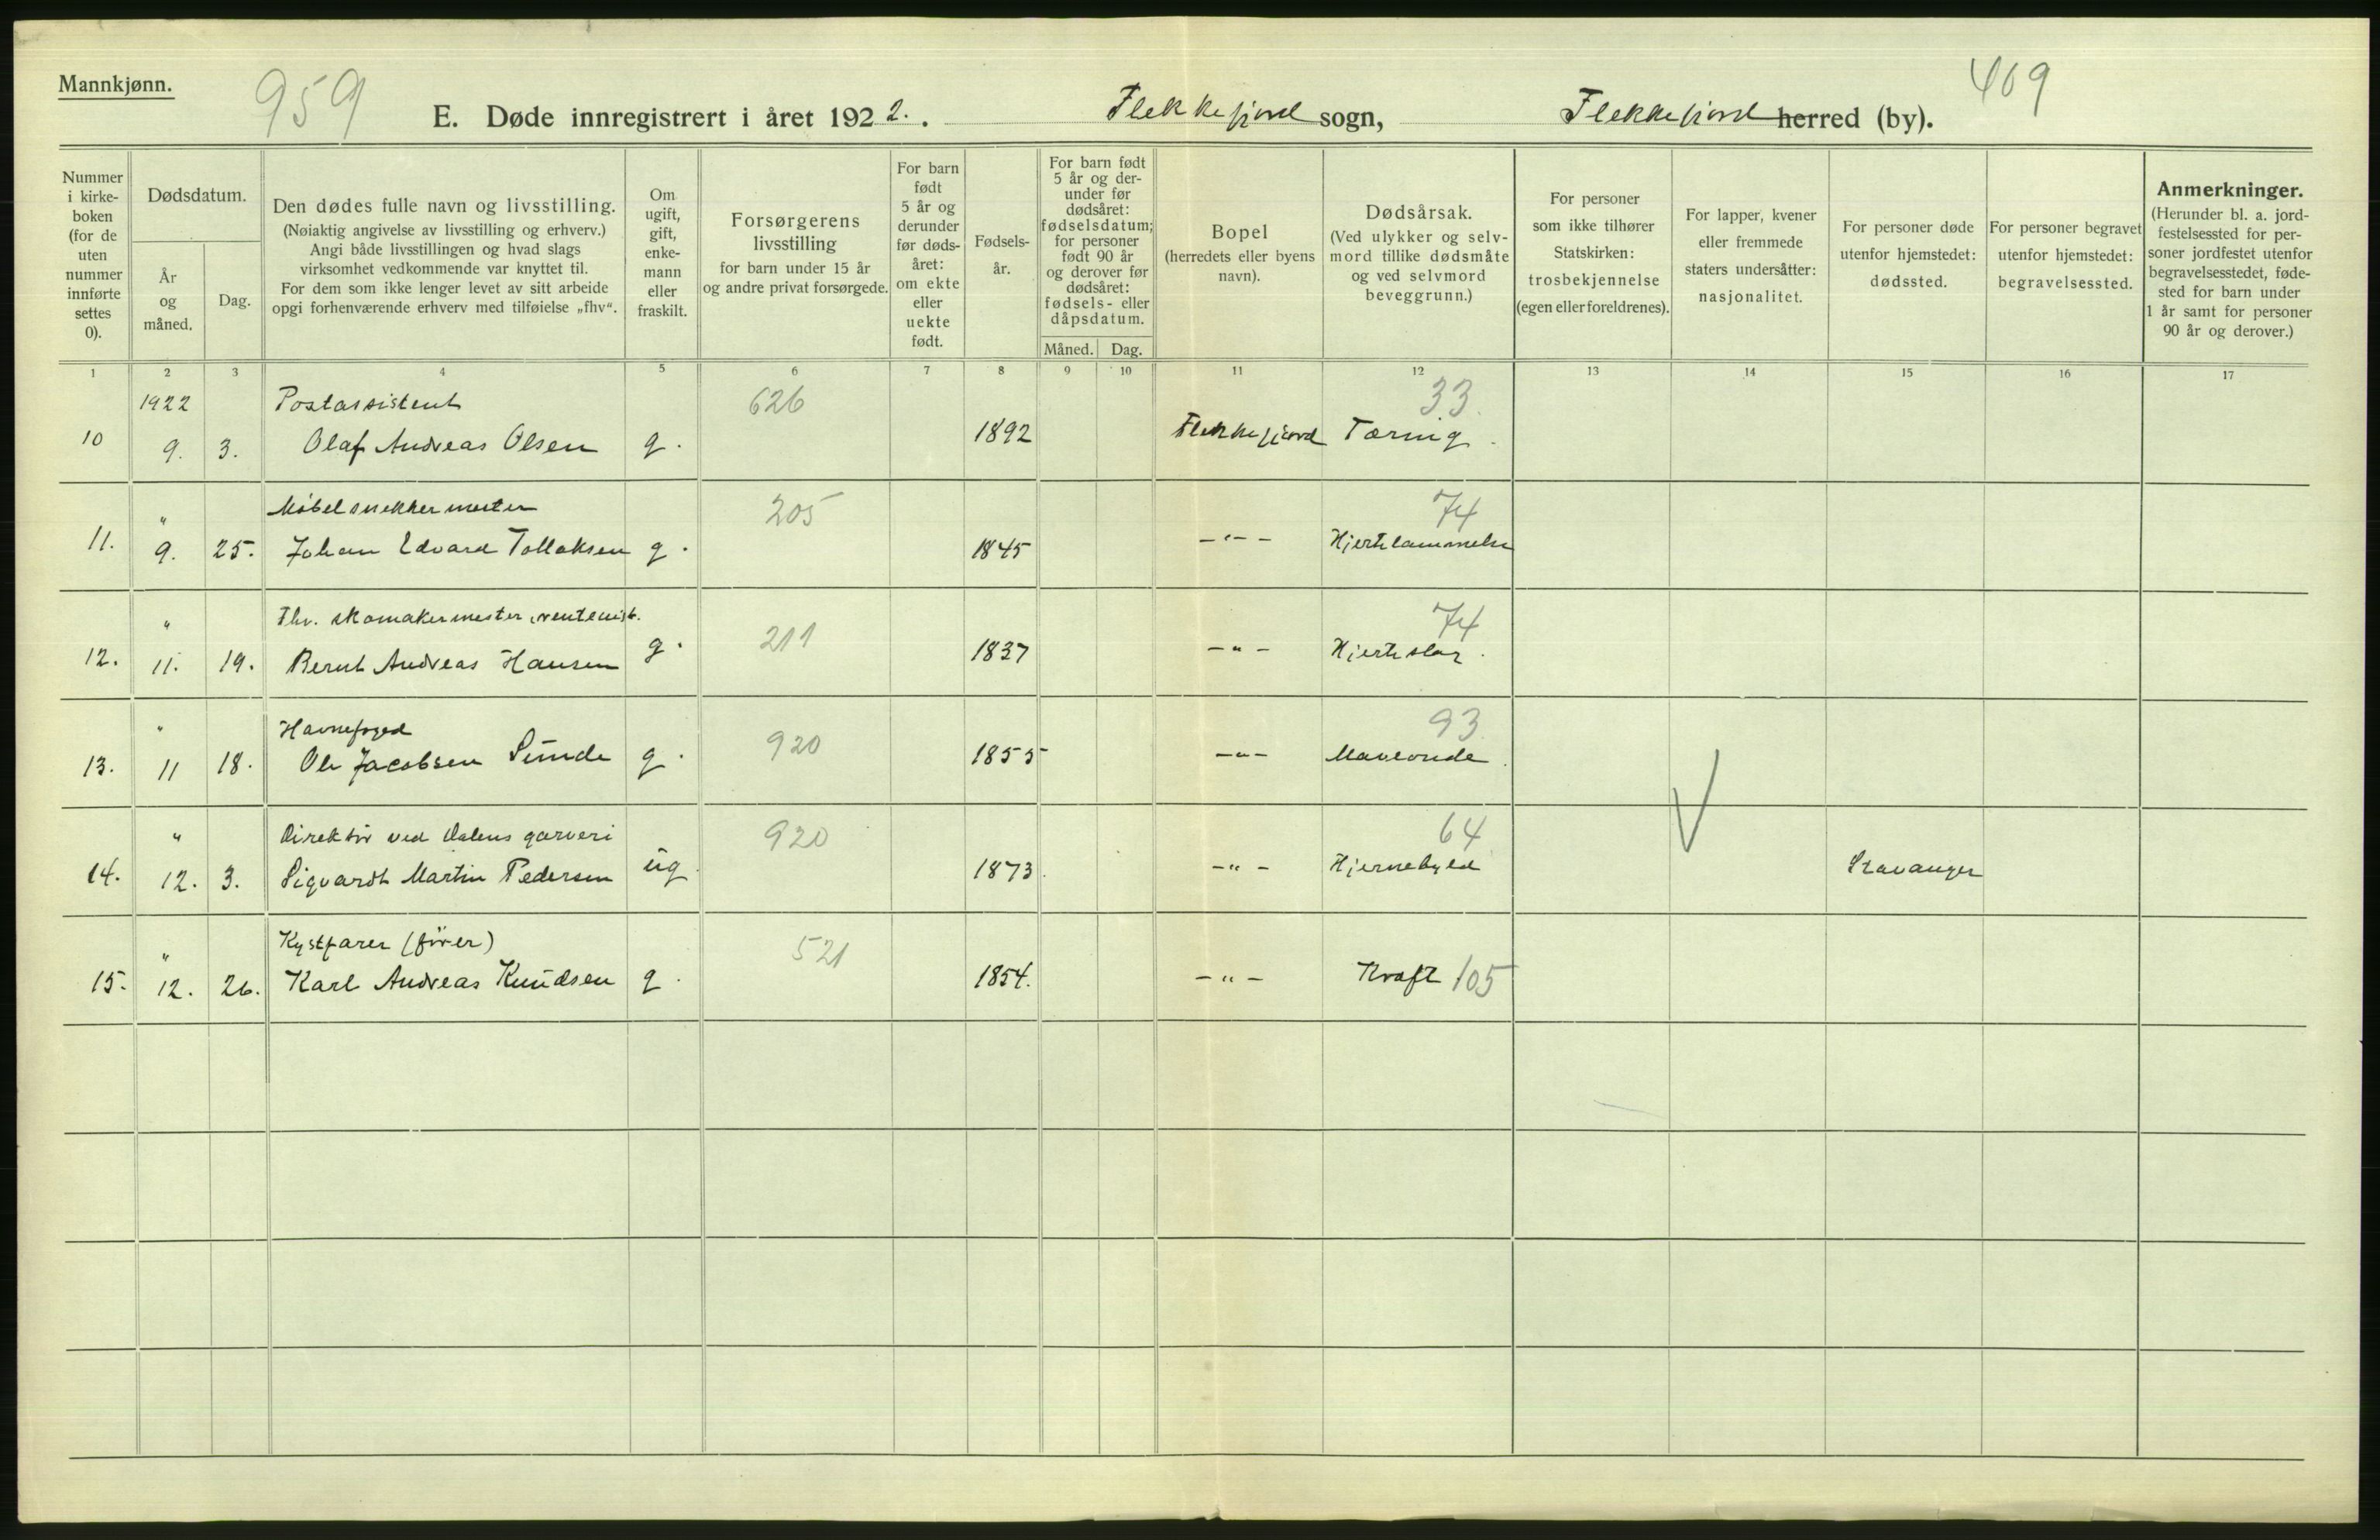 Mannkjønn.
959
409
E. Døde innregistrert i året 1922. . Flekkefjord sogn, Flekkefjord herred (by).
Nummer i kirke-boken (for de uten nummer innførte settes 0).
Dødsdatum.
År og måned.
Dag.
Den dødes fulle navn og livsstilling.
(Nøiaktig angivelse av livsstilling og erhverv.)
Angi både livsstillingen og hvad slags
virksomhet vedkommende var knyttet til.
For dem som ikke lenger levet av sitt arbeide
opgi forhenværende erhverv med tilføielse „fhv“.
Om ugift, gift, enke-mann eller fraskilt.
Forsørgerens
livsstilling
for barn under 15 år
og andre privat forsørgede.
For barn født 5 år og derunder før døds-året: om ekte eller uekte født.
Fødsels-år.
For barn født 5 år og der-under før dødsåret: fødselsdatum; for personer født 90 år og derover før dødsåret: fødsels- eller dåpsdatum.
Måned. Dag.
Bopel
(herredets eller byens
navn).
Dødsårsak.
(Ved ulykker og selv-
mord tillike dødsmåte
og ved selvmord
beveggrunn.)
For personer
som ikke tilhører
Statskirken:
trosbekjennelse
(egen eller foreldrenes).
For lapper, kvener
eller fremmede
staters undersåtter:
nasjonalitet.
For personer døde
utenfor hjemstedet:
dødssted.
For personer begravet
utenfor hjemstedet:
begravelsessted.
Anmerkninger.
(Herunder bl. a. jord-
festelsessted for per-
soner jordfestet utenfor
begravelsesstedet, føde-
sted for barn under
1 år samt for personer
90 år og derover.)
1 2 3 4 5 6 7 8 9 10 11 12 13 14 15 16 17
1922 Postassistent 626 33.
10 9. 3. Olaf Andreas Olsen g. 1892 Flekkefjord Tæring.
" Møbelsnekkermester 205 74
11. 9. 25. Johan Edvard Tollaksen g. 1845 -"- Hjertelammelse
" Fhv. skomakermester, rentenist. 211 74
12. 11. 19. Bernt Andreas Hansen g. 1837 -"- Hjerteslag.
" Havnefoged 920 93
13. 11 18. Ole Jacobsen Sunde g. 1855 -"- Maveonde.
" Direktør ved Dalens garveri 920 64
14. 12. 3. Sigvardt Martin Pedersen ug. 1873. -"- Hjernebyld Stavanger
" Kystfarer (fører) 521
15. 12. 26. Karl Andreas Knudsen g. 1854. -"- Kræft 105